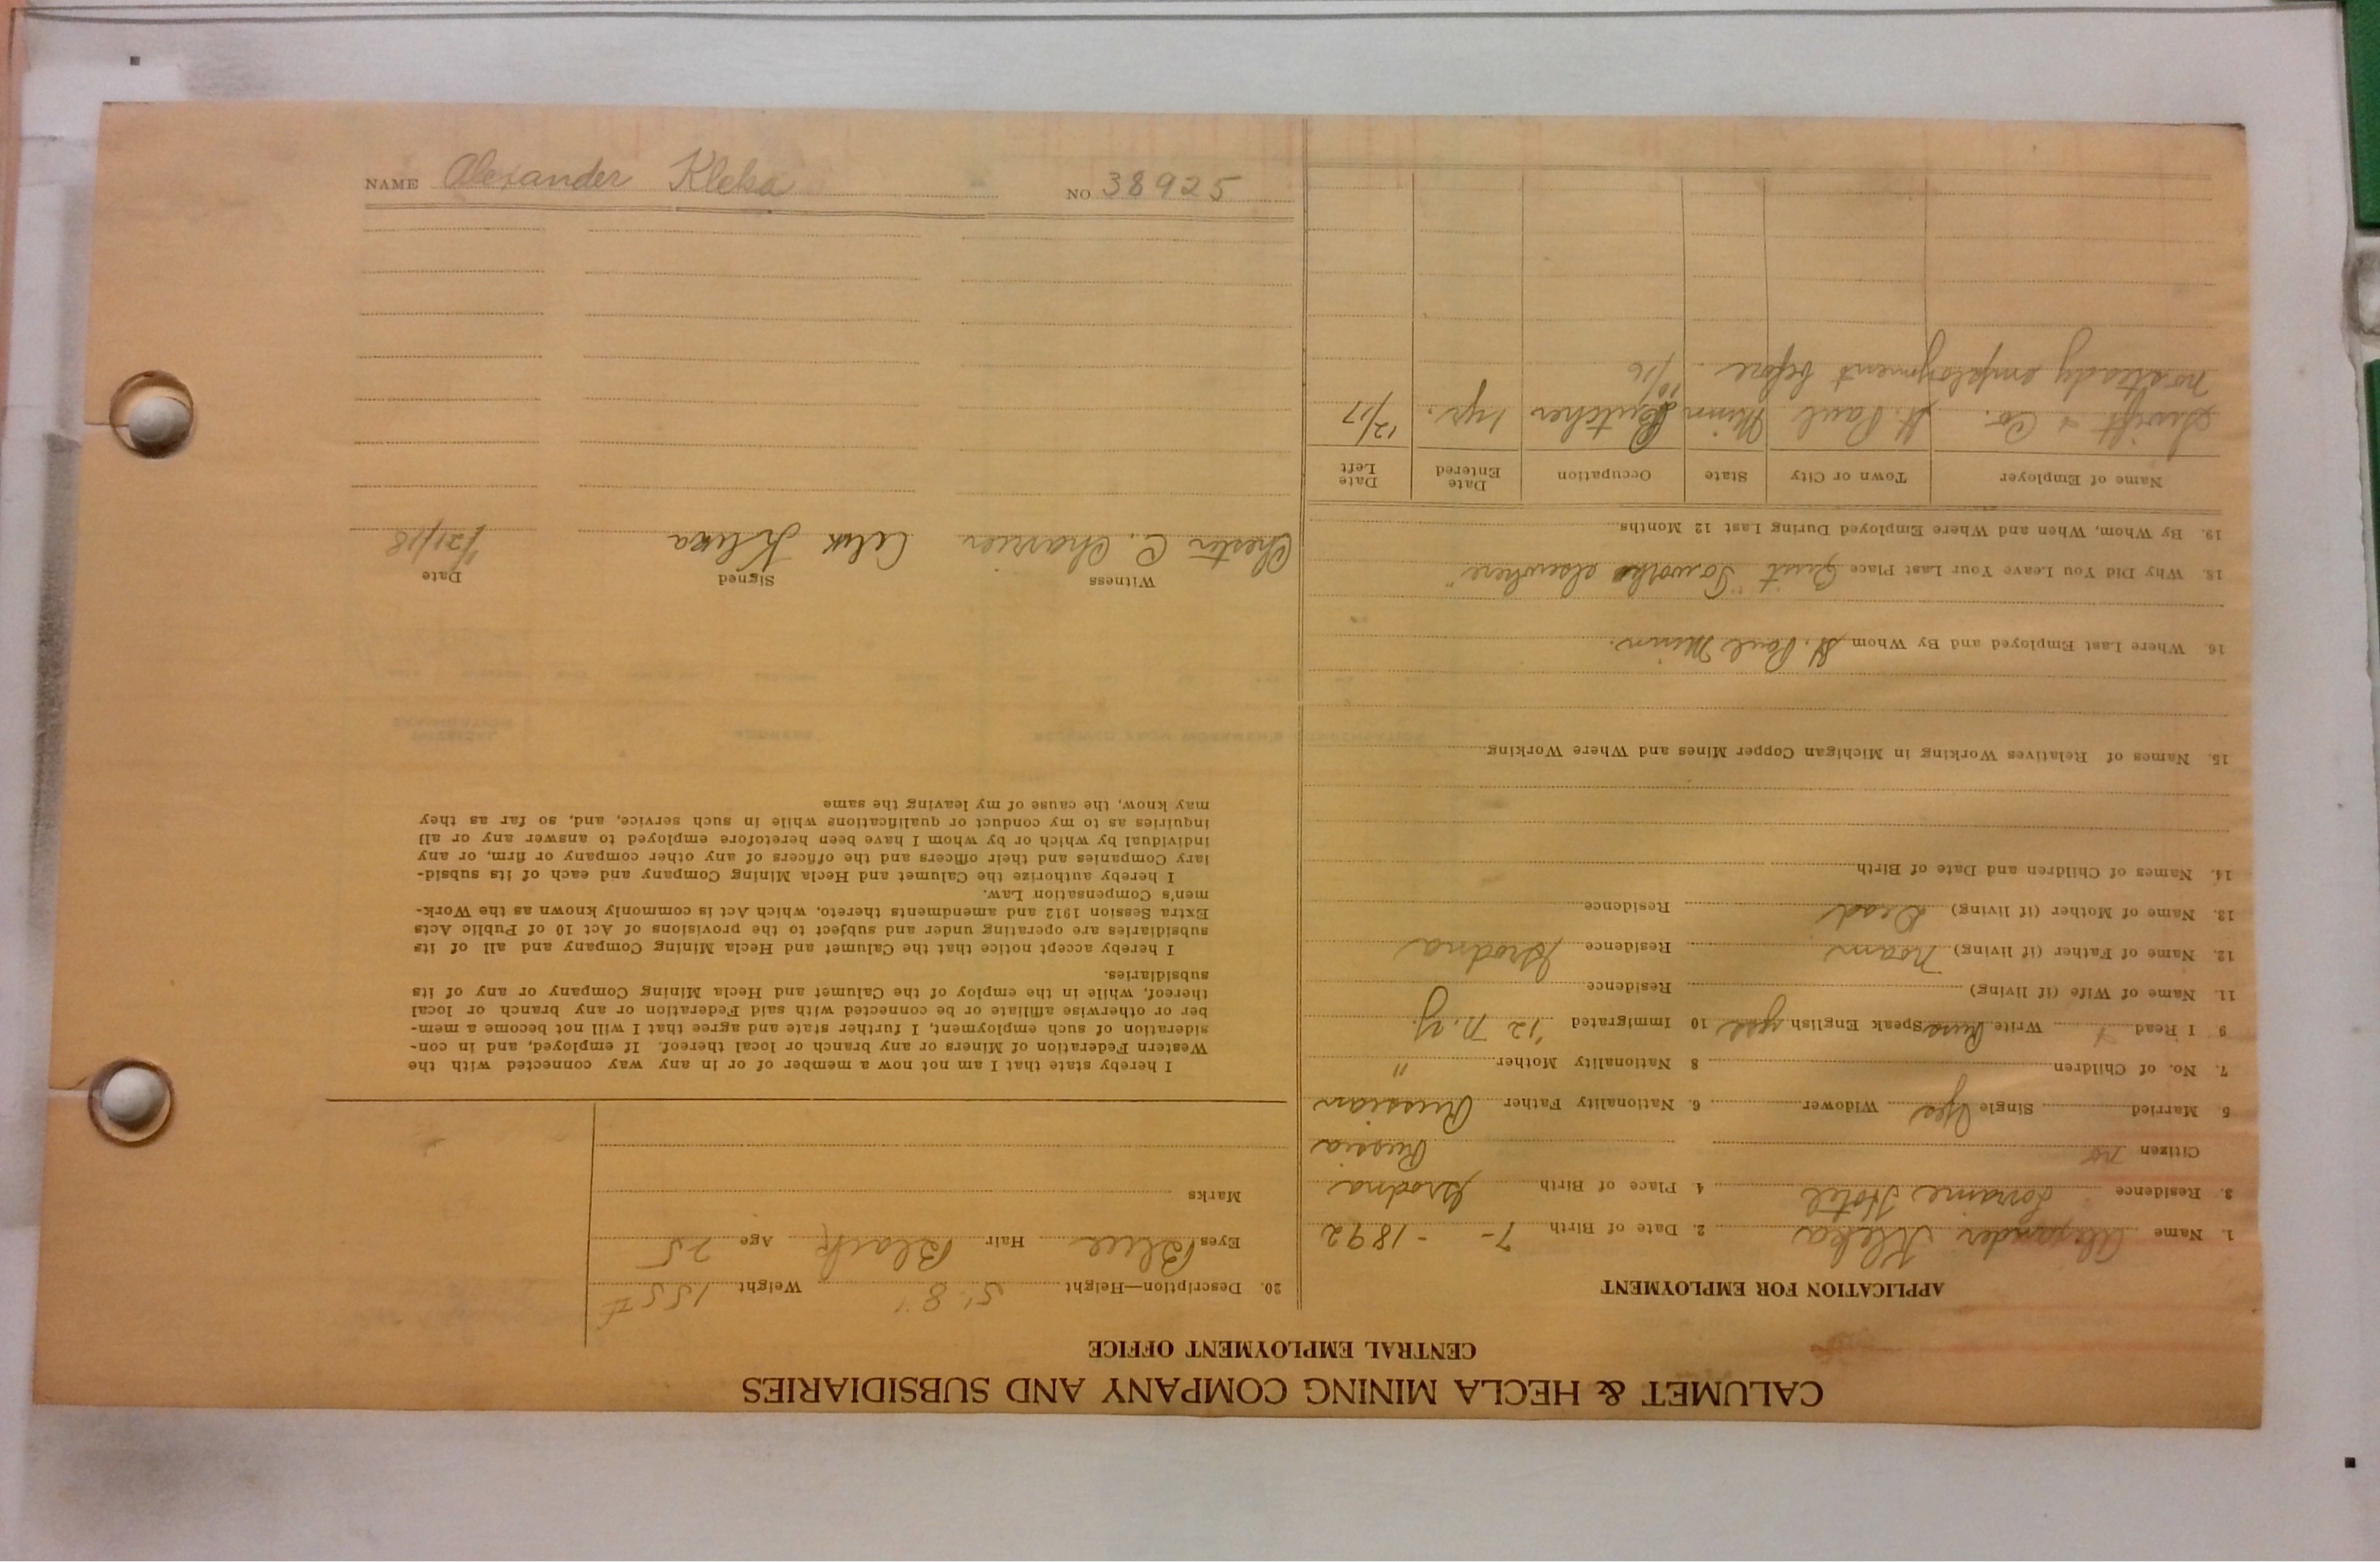 CALUMET & HECLA MINING COMPANY AND SUBSIDIARIES
CENTRAL EMPLOYMENT OFFICE
APPLICATION FOR EMPLOYMENT
1. Name Alexander Kleka 2. Date of Birth 7- - 1892
3. Residence Lorraine Hotel 4. Place of Birth Grodna
Citizen no Russia
5 Married Single Yes Widower 6. Nationality Father Russian
7. No. of Children 8 Nationality Mother "
9 I Read Write Russ Speak English yes 10 Immigrated '12 N.Y.
11. Name of Wife (if living) Residence
12. Name of Father (if living) Noam Residence Grodna
13. Name of Mother (if living) Dead Residence
14. Names of Children and Date of Birth
15. Names of Relatives Working in Michigan Copper Mines and Where Working
16. Where Last Employed and By Whom St. Paul Minn.
18. Why Did You Leave Your Last Place Quit "To work elsewhere"
19. By Whom, When and Where Employed During Last 12 Months
Name of Employer Town or City State Occupation Date Entered Date Left
Swift & Co. St. Paul Minn Butcher 1 yr. 12/17
10/16
no steady employment before.
20. Description—Height 5' 8" Weight 155 #
Eyes Blue Hair Black Age 25
Marks
I hereby state that I am not now a member of or in any way connected with the
Western Federation of Miners or any branch or local thereof. If employed, and in con-
sideration of such employment, I further state and agree that I will not become a mem-
ber or otherwise affiliate or be connected with said Federation or any branch or local
thereof, while in the employ of the Calumet and Hecla Mining Company or any of its
subsidiaries.
I hereby accept notice that the Calumet and Hecla Mining Company and all of its
subsidiaries are operating under and subject to the provisions of Act 10 of Public Acts
Extra Session 1912 and amendments thereto, which Act is commonly known as the Work-
men's Compensation Law.
I hereby authorize the Calumet and Hecla Mining Company and each of its subsid-
iary Companies and their officers and the officers of any other company or firm, or any
individual by which or by whom I have been heretofore employed to answer any or all
inquiries as to my conduct or qualifications while in such service, and, so far as they
may know, the cause of my leaving the same
Witness Signed Date
Chester C. Charrier Alex Kleka 1/21/18
NAME Alexander Kleka NO 38925